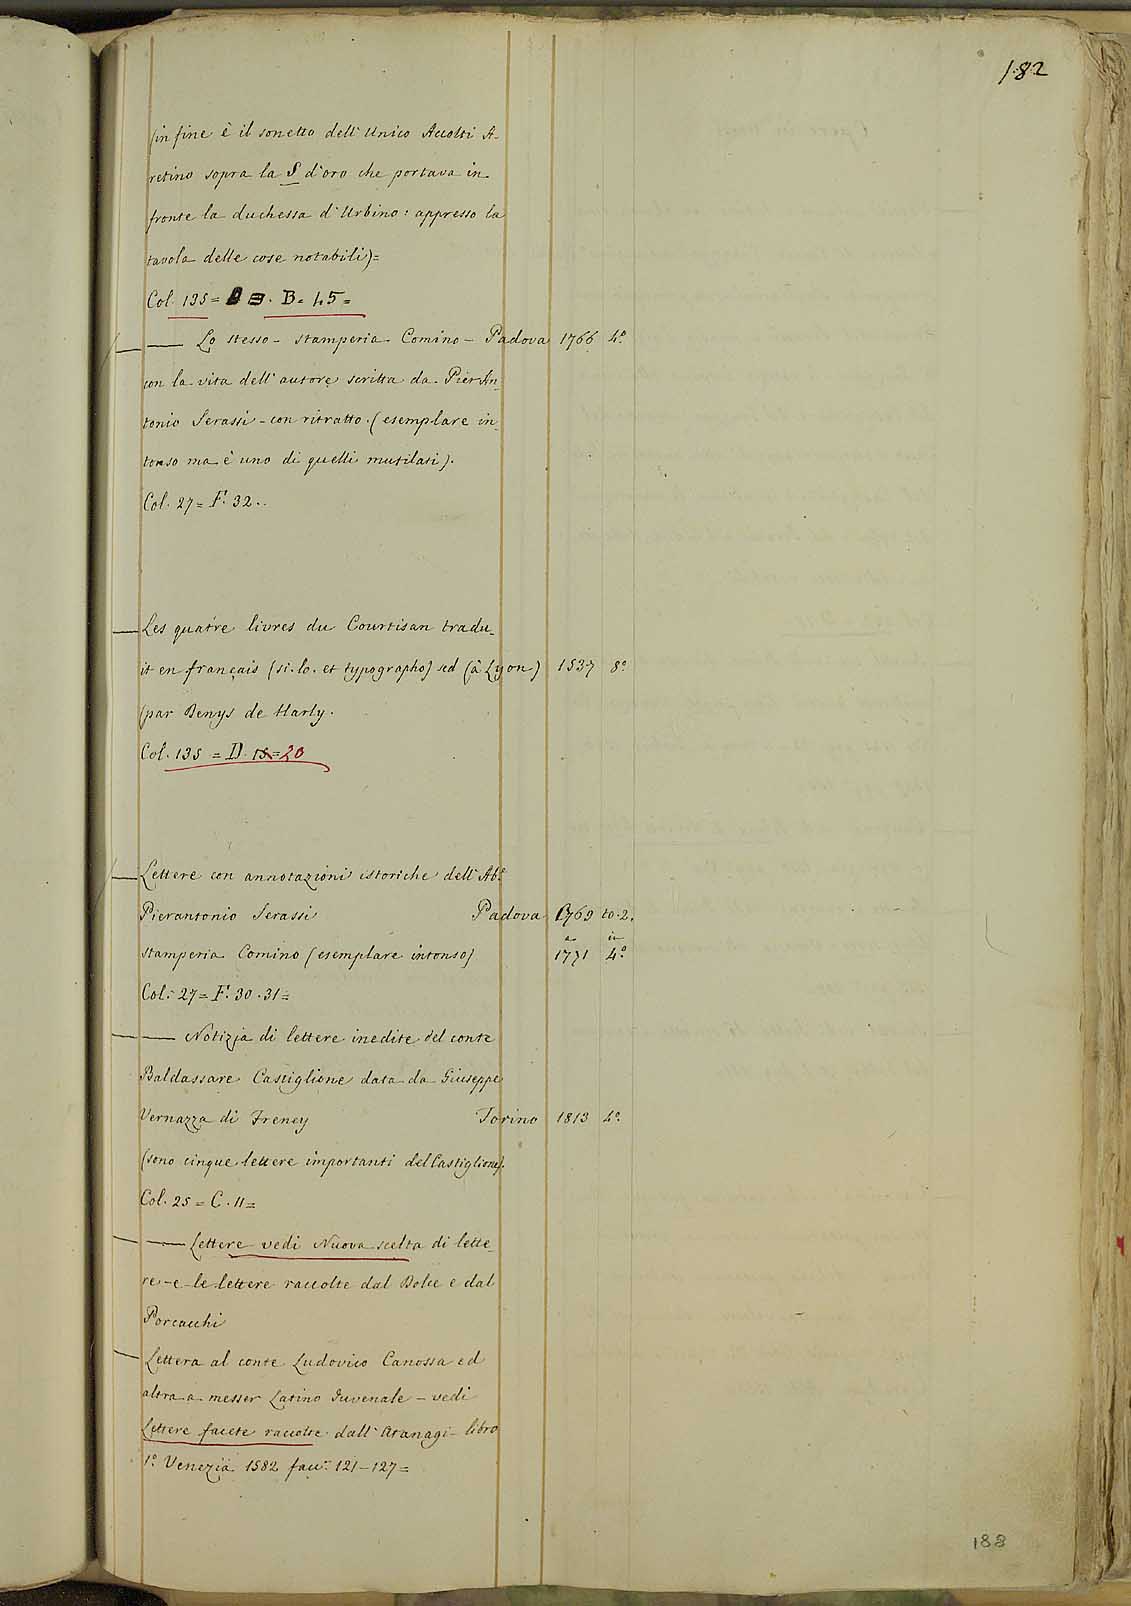 182
(in fine è il sonetto dell' Unico Accolti A-
retino sopra la S d'oro che portava in
fronte la duchessa d'Urbino: appresso la
tavola delle cose notabili)=
Col. 135= B. 45=
—— Lo stesso - stamperia Comino - Padova 1766 4°.
con la vita dell'autore scritta da Pier An-
tonio Serassi - con ritratto. (esemplare in-
tonso ma è uno di quelli mutilati).
Col. 27= F. 32.
—Les quatre livres du Courtisan tradu-
it en français (si. lo. et typographo) sed (à Lyon) 1537 8°
(par Denys de Harly.
Col. 135 = D. 15=20
—Lettere con annotazioni istoriche dell'Ab.e
Pierantonio Serassi Padova 1769 to. 2.
a in
stamperia Comino (esemplare intonso) 1771 4°
Col. 27= F. 30. 31=
—— Notizia di lettere inedite del conte
Baldassare Castiglione data da Giuseppe
Vernazza di Freney Torino 1813 4°.
(sono cinque lettere importanti del Castiglione).
Col. 25= C. 11=
—— Lettere vedi Nuova scelta di lette-
re - e le lettere raccolte dal Dolce e dal
Porcacchi
—Lettera al conte Ludovico Canossa ed
altra a messer Latino Juvenale - vedi
Lettere facete raccolte dall'Atanagi - libro
1°. Venezia 1582 fac.e 121-127=
188